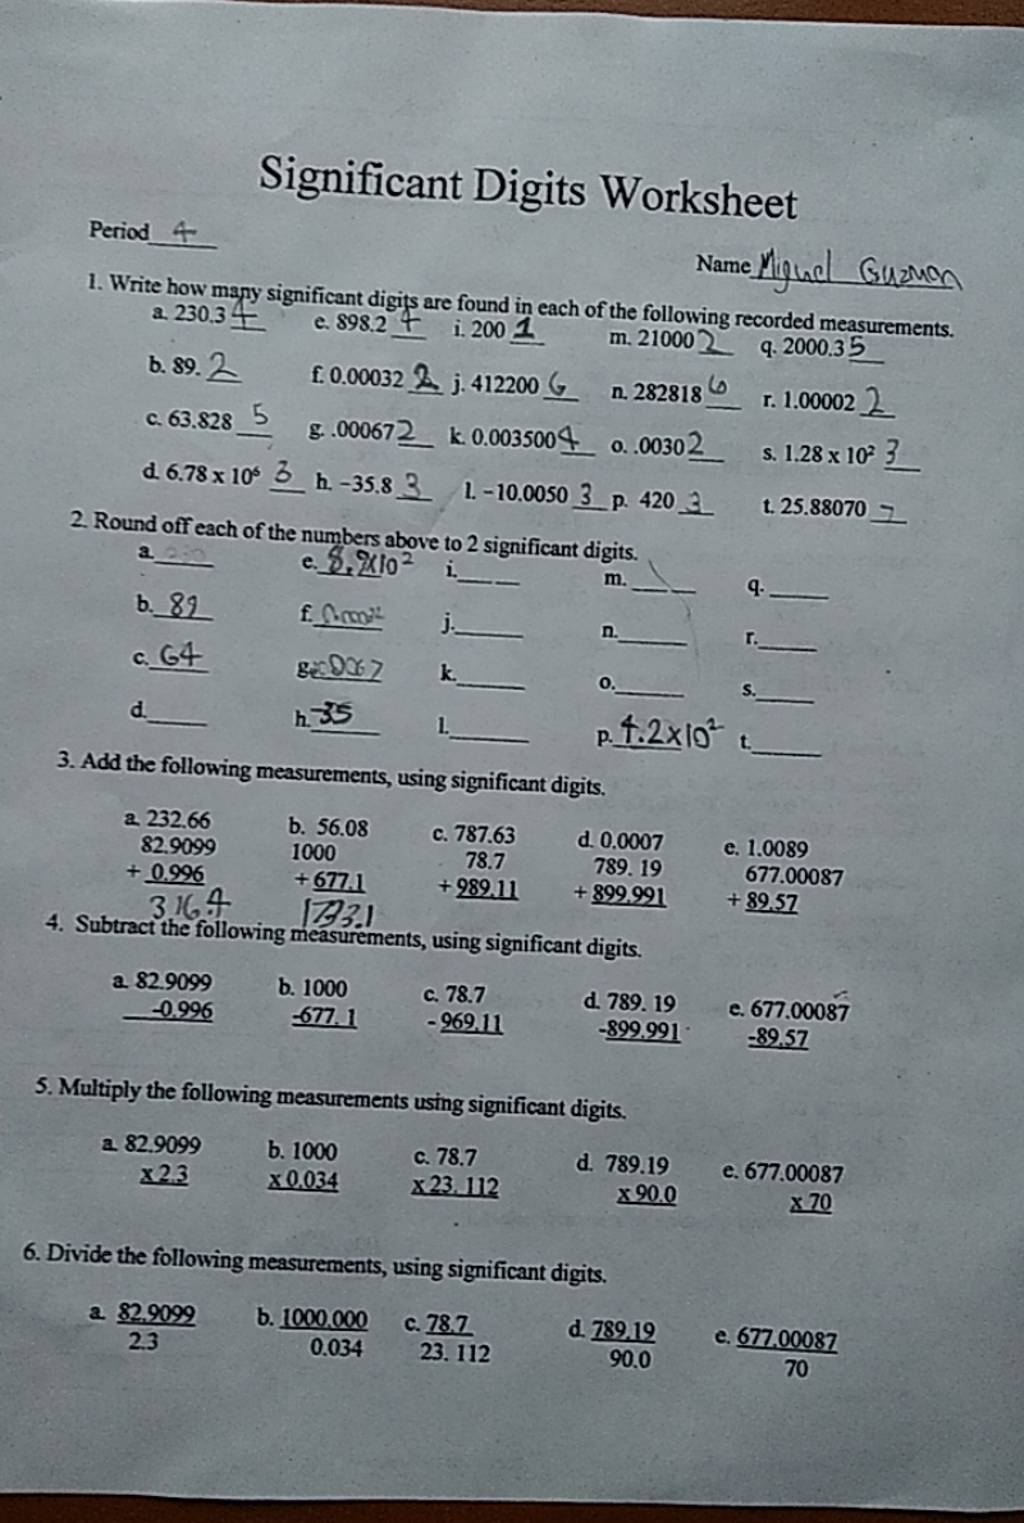 Significant Digits Worksheet
Period 4
Name Miguel Guzman
1. Write how many significant digits are found in each of the following recorded measurements.
a. 230.3 4 e. 898.2 4 i. 200 1 m. 21000 2 q. 2000.3 5
b. 89. 2 f. 0.00032 2 j. 412200 6 n. 282818 6 r. 1.00002 2
c. 63.828 5 g. .00067 2 k. 0.003500 4 o. .0030 2 s. 1.28 x 10² 3
d. 6.78 x 10⁶ 3 h. -35.8 3 l. -10.0050 3 p. 420 3 t. 25.88070 7
2. Round off each of the numbers above to 2 significant digits.
a. e. 8.9x10² i. m. q.
b. 89 f. j. n. r.
c. 64 g. k. o. s.
d. h. -35 l. p. 4.2x10² t.
3. Add the following measurements, using significant digits.
a. 232.66 b. 56.08 c. 787.63 d. 0.0007 e. 1.0089
82.9099 1000 78.7 789. 19 677.00087
+ 0.996 + 677.1 + 989.11 + 899.991 + 89.57
316.4 1733.1
4. Subtract the following measurements, using significant digits.
a. 82.9099 b. 1000 c. 78.7 d. 789. 19 e. 677.00087
-0.996 -677. 1 - 969.11 -899.991 -89.57
5. Multiply the following measurements using significant digits.
a. 82.9099 b. 1000 c. 78.7 d. 789.19 e. 677.00087
x 2.3 x 0.034 x 23. 112 x 90.0 x 70
6. Divide the following measurements, using significant digits.
a. 82.9099 b. 1000.000 c. 78.7 d. 789.19 e. 677.00087
2.3 0.034 23. 112 90.0 70